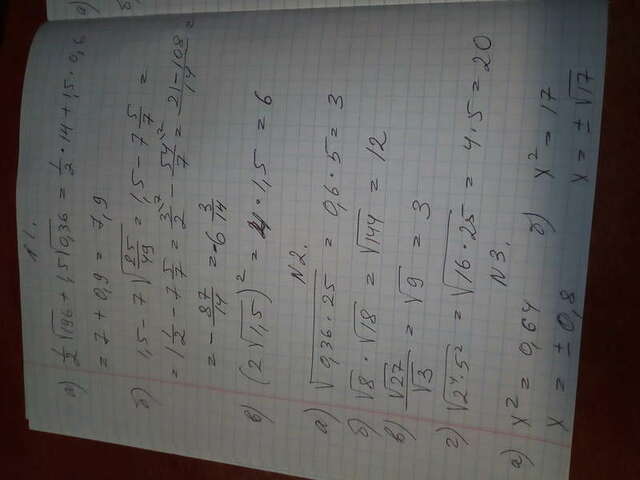 N 1.
а) 1/2 √196 + 1,5 √0,36 = 1/2 · 14 + 1,5 · 0,6
= 7 + 0,9 = 7,9
б) 1,5 - 7 √25/49 = 1,5 - 7 5/7 =
= 1 1/2 - 7 5/7 = 3/2 - 54/7 = 21-108/14 =
= - 87/14 = -6 3/14
в) (2√1,5)² = 4 · 1,5 = 6
N 2.
а) √0,36 · 25 = 0,6 · 5 = 3
б) √8 · √18 = √144 = 12
в) √27/√3 = √9 = 3
г) √2⁴ · 5² = √16 · 25 = 4 · 5 = 20
N 3.
а) x² = 0,64 б) x² = 17
x = ± 0,8 x = ± √17
а)
б)